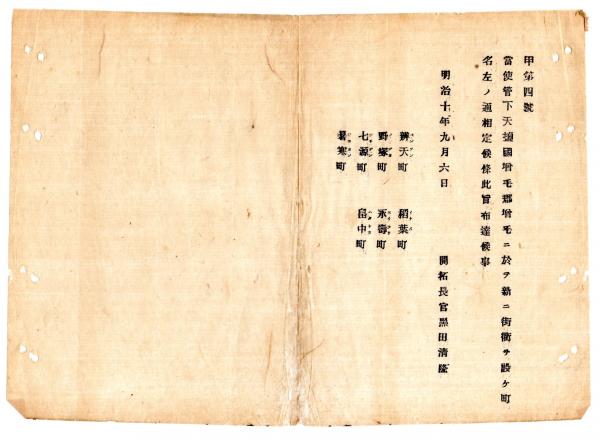 甲第四號
當使管下天塩國增毛郡增毛ニ於テ新ニ街衢ヲ設ケ町
名左ノ通相定候條此旨布達候事
明治十年九月六日
開拓長官黑田清隆
辨天町
稻葉町
野塚町
永壽町
七源町
畠中町
暑寒町